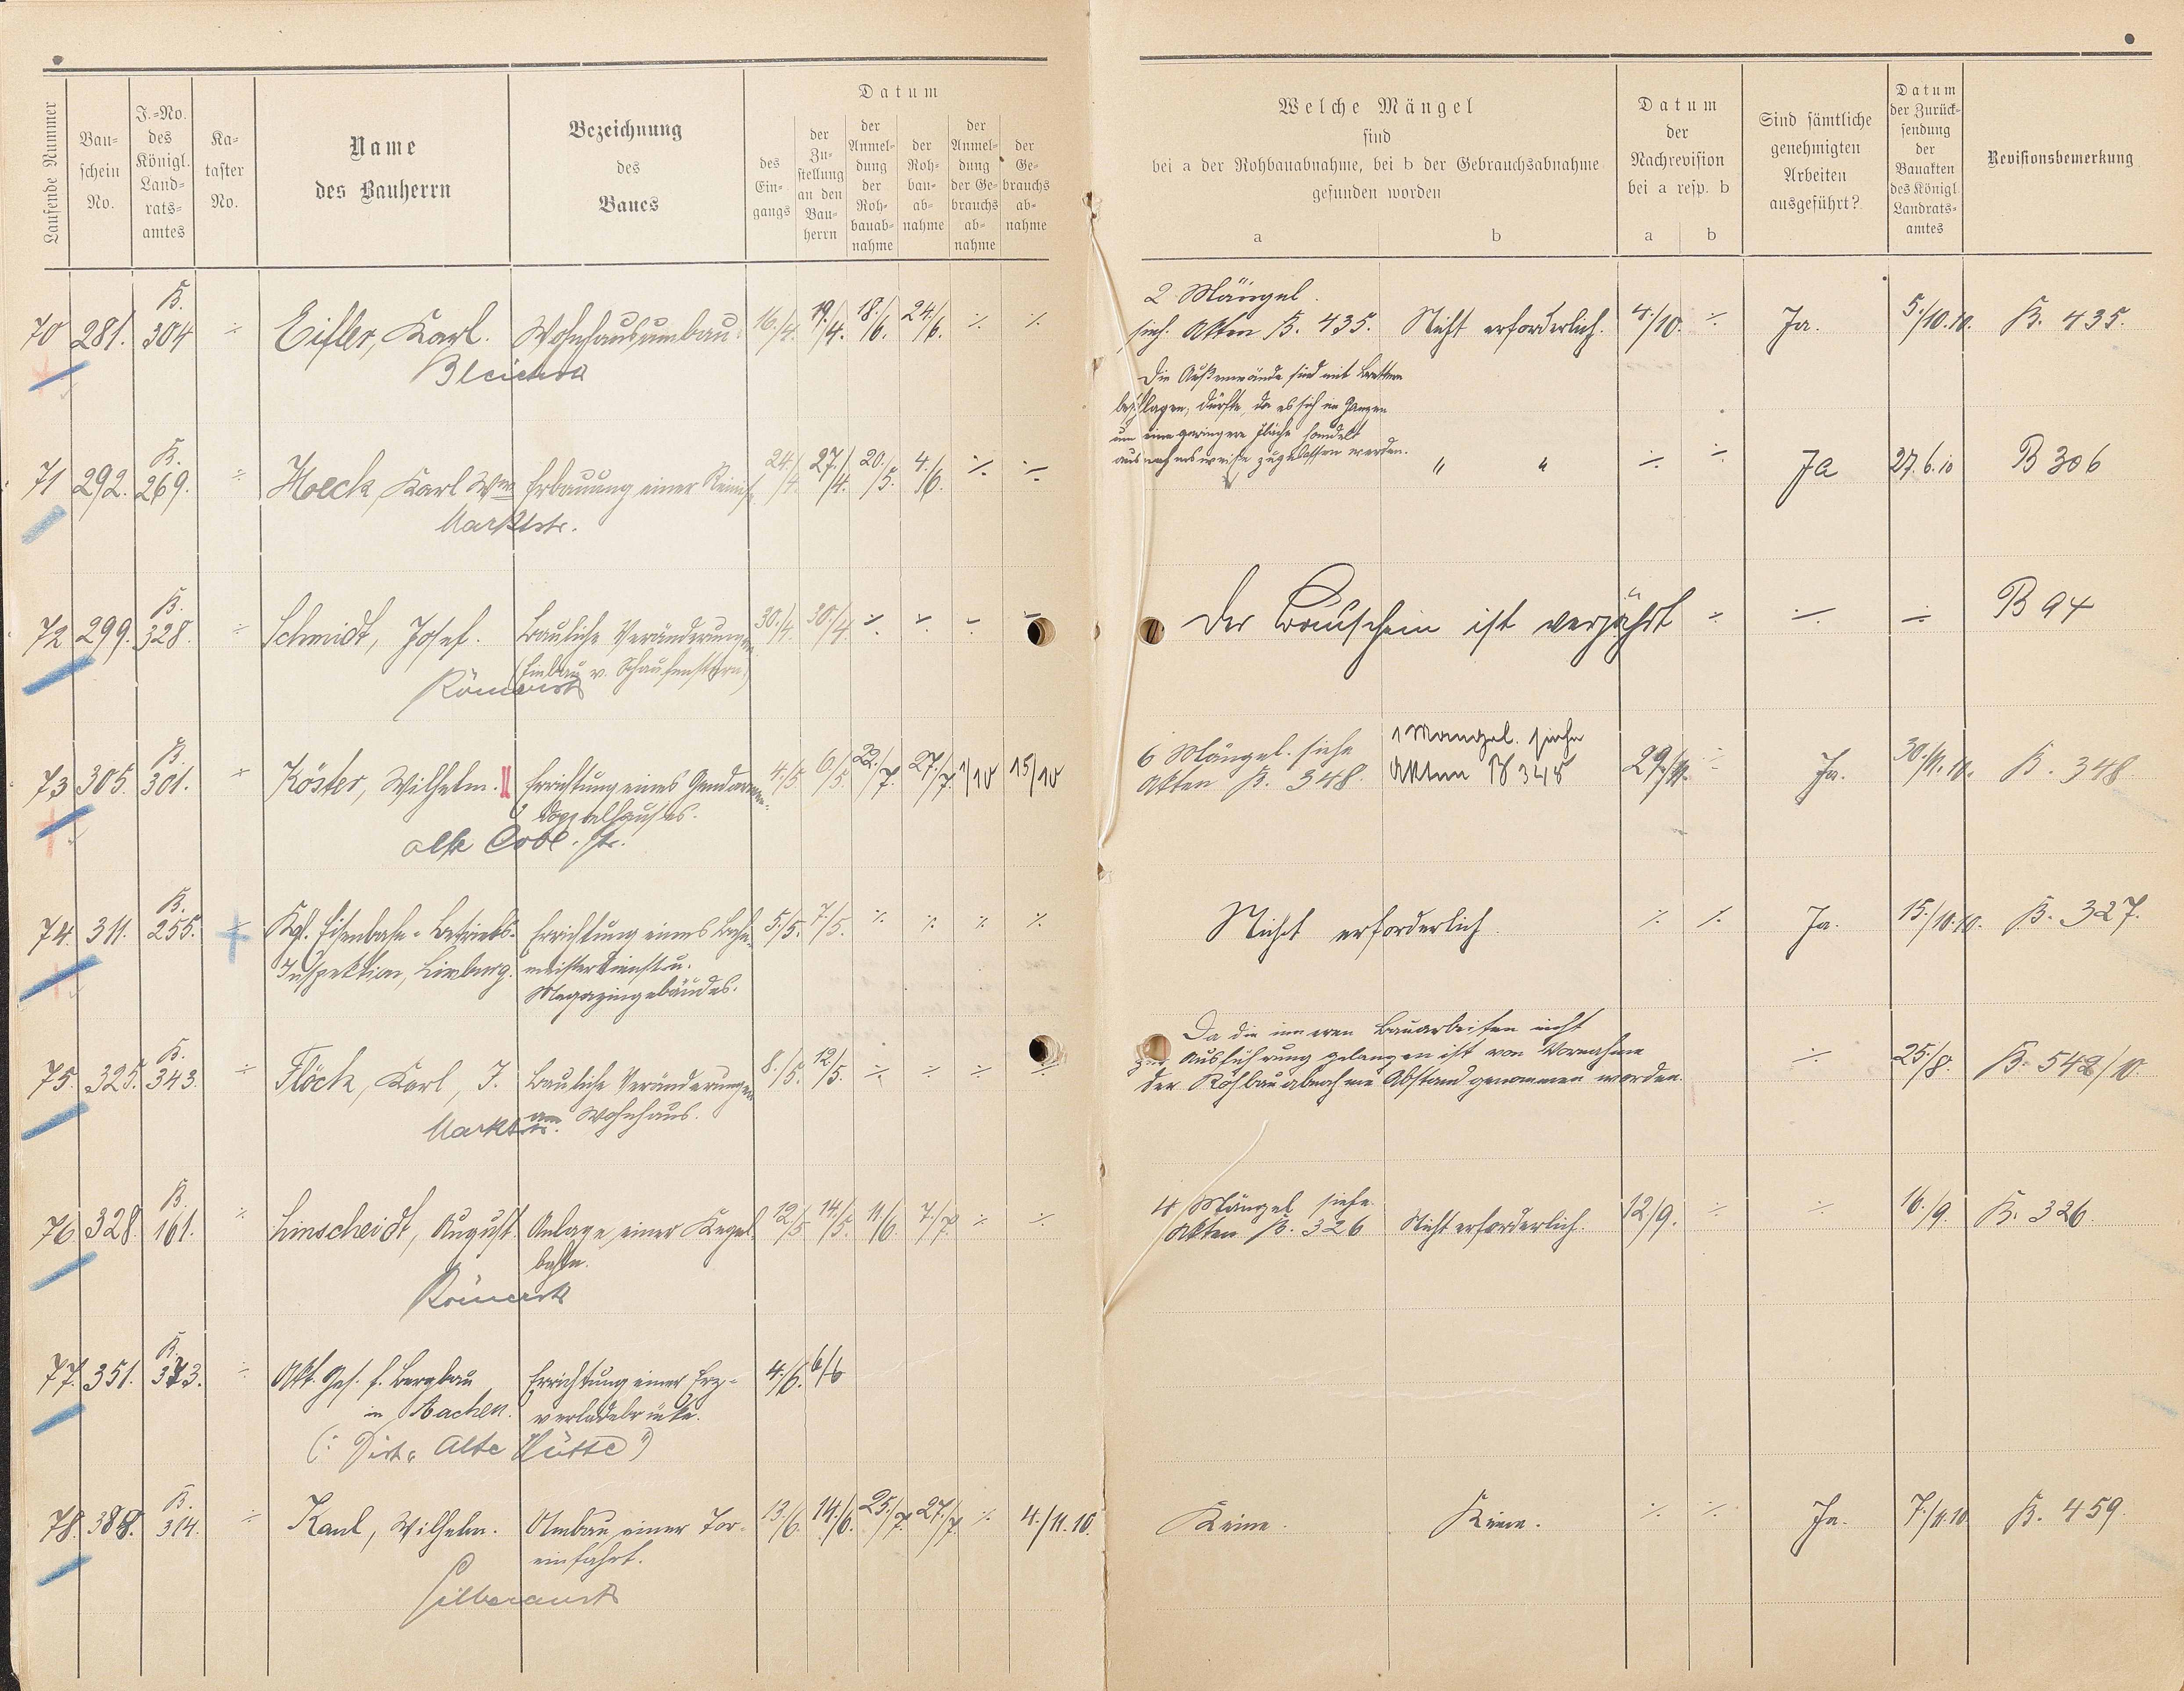 Laufende Nummer
Bau-
schein
No.
J.-No.
des
Königl.
Land-
rats-
amtes
Ka-
taster
No.
Name
des Bauherrn
Bezeichnung
des
Baues
Datum
des
Ein-
gangs
der
Zu-
stellung
an den
Bau-
herrn
der
Anmel-
dung
der
Roh-
bauab-
nahme
der
Roh-
bau-
ab-
nahme
der
Anmel-
dung
der Ge-
brauchs
ab-
nahme
der
Ge-
brauchs
ab-
nahme
Welche Mängel
sind
bei a der Rohbauabnahme, bei b der Gebrauchsabnahme
gefunden worden
a b
Datum
der
Nachrevision
bei a resp. b
a b
Sind sämtliche
genehmigten
Arbeiten
ausgeführt?
Datum
der Zurück-
sendung
der
Bauakten
des Königl.
Landrats-
amtes
Revisionsbemerkung
B. 2 Mängel.
70 281. 304 ÷ Eifler, Karl. Wohnhausumbau. 16./4. 19./4. 18./6. 24./6. ÷ ÷ sieh. Akten B. 435. Nicht erforderlich. 4./10. ÷ Ja. 5./10.10. B. 435.
Die Außenwände sind mit Brettern
beschlagen, dürfte, da es sich im Ganzen
um eine geringere Fläche handelt
ausnahmsweise zugelassen werden.
B.
71 292. 269. ÷ Hoeck, Karl Wwe Erbauung einer Remise 24./4. 27./4. 20./5. 4./6. ÷ ÷ " " ÷ ÷ Ja 27.6.10 B 306
Marktstr.
B.
72 299. 328. ÷ Schmidt, Josef. Bauliche Veränderungen 30./4. 30./4. ÷ ÷ ÷ ÷ Der Bauschein ist verjährt ÷ ÷ ÷ B 94
(Einbau v. Schaufenstern)
Römerstr
B. 6 Mängel. siehe 1 Mangel. siehe
73 305. 301. ÷ Köster, Wilhelm. II Errichtung eines Gendarmen- 4/5 6/5. 22./7. 27./7. 1/10 15/10 Akten B. 348. Akten B 348 29./11. ÷ Ja. 30./11.10. B. 348
doppelhauses.
alte Cobl. str.
B.
74. 311. 255. ÷ Kgl. Eisenbahn-Betriebs- Errichtung eines Bahn- 5./5. 7./5. ÷ ÷ ÷ ÷ Nicht erforderlich. ÷ ÷ Ja. 15./10.10. B. 327.
Inspektion, Limburg. meisterdienst u.
Magazingebäudes.
Da die inneren Bauarbeiten nicht
B. zur Ausführung gelangen ist von Vornahme
75. 325. 343. ÷ Flöck, Karl, J. Bauliche Veränderungen 8./5. 12./5. ÷ ÷ ÷ ÷ der Rohbauabnahme Abstand genommen worden. ÷ 25./8. B. 542/10
am Wohnhaus.
Marktstr.
B. 4 Mängel siehe
76 328. 161. ÷ Linscheidt, August. Anlage einer Kegel- 12/5 14./5. 11/6. 7./7. ÷ ÷ Akten B. 326 Nicht erforderlich. 12/9. ÷ ÷ 16./9. B. 326.
bahn.
Römerstr
B.
77. 351. 373. ÷ Akt. Ges. f. Bergbau Errichtung einer Erz- 4./6. 6/6
in Aachen. verladebrücke.
(: Dist. "Alte Hütte")
B.
78. 388. 314. ÷ Kaul, Wilhelm. Umbau einer Tor- 13./6. 14./6. 25./7. 27./7. ÷ 4./11.10. Keine. Keine. ÷ ÷ Ja. 7./11.10 B. 459.
einfahrt.
Silberaustr